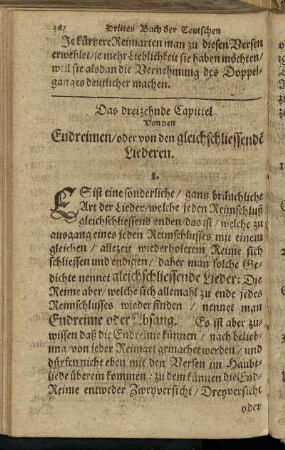 387 Drittes Buch der Teutschen
Je kürtzere Reimarten man zu diesen Versen
erwehlet/ je mehr Lieblichkeit sie haben möchten/
weil sie alsdan die Vernehmung des Doppel-
ganges deutlicher machen.
Das dreizehnde Capittel
Von den
Endreimen/ oder von den gleichschliessendē
Liederen.
I.
ES ist eine sonderliche/ gantz bräuchliche
Art der Lieder/ welche jeden Reimschluß
gleichschliessend enden/ das ist/ welche zu
ausgang eines jeden Reimschlusses mit einem
gleichen/ allezeit wiederholetem Reime sich
schliessen und endigen/ daher man solche Ge-
dichte nennet gleichschliessende Lieder: Die
Reime aber/ welche sich allemahl zu ende jedes
Reimschlusses wieder finden/ nennet man
Endreime oder Absang. Es ist aber zu-
wissen daß die Endreime können/ nach belieb-
ung/ von jeder Reimart gemachet werden/ und
dürfen nicht eben mit den Versen im Haubt-
liede überein kommen: zu dem können die End-
Reime entweder Zweyversicht/ Dreyversicht
oder